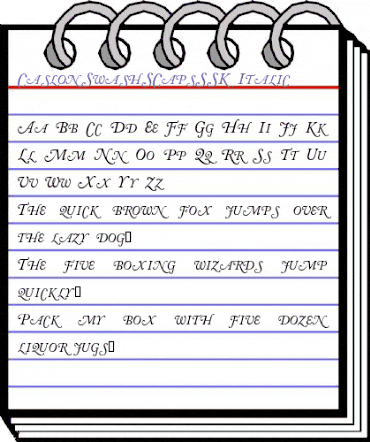 CASLONSWASHSCAPSSSK ITALIC
AA BB CC DD EE FF GG HH II JJ KK
LL MM NN OO PP QQ RR SS TT UU
VV WW XX YY ZZ
THE QUICK BROWN FOX JUMPS OVER
THE LAZY DOG▯
THE FIVE BOXING WIZARDS JUMP
QUICKLY▯
PACK MY BOX WITH FIVE DOZEN
LIQUOR JUGS▯